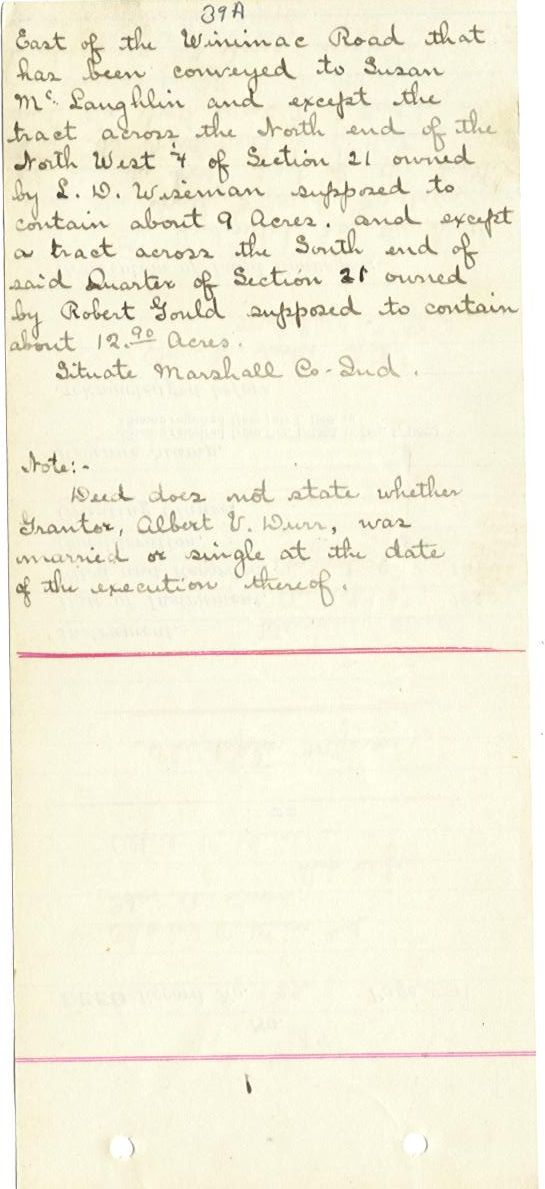 39A
East of the Winimac Road that
has been conveyed to Susan
Mc Laughlin and except the
tract across the North end of the
North West ¼ of Section 21 owned
by L. D. Wiseman supposed to
contain about 9 Acres. and except
a tract across the South end of
said Quarter of Section 21 owned
by Robert Gould supposed to contain
about 12.90 Acres.
Situate Marshall Co-Ind.
Note:-
Deed does not state whether
Grantor, Albert V. Durr, was
married or single at the date
of the execution thereof.